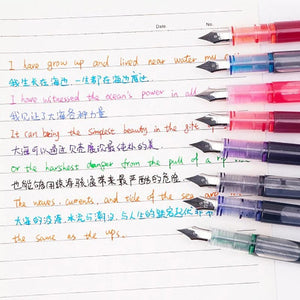 Date
No.
I have grow up and lived near water my
我生长在海边,一生都在海边度过.
I have witnessed the ocean's power in all
我见证了大海各种力量
It can bring the simplest beauty in the
大海可以通过
or the harshest danger from the pull of a rip
也能够用
来最严酷的危险
The waves, currents, and tide of the sea
大海的波浪,水流与潮汐,与人生的
the same as the ups.